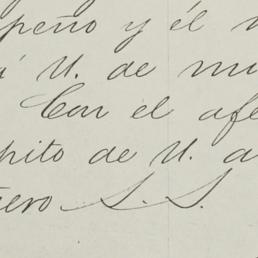 peño y él
á U. de mu
Con el afe
pito de U. a
ero S. S.